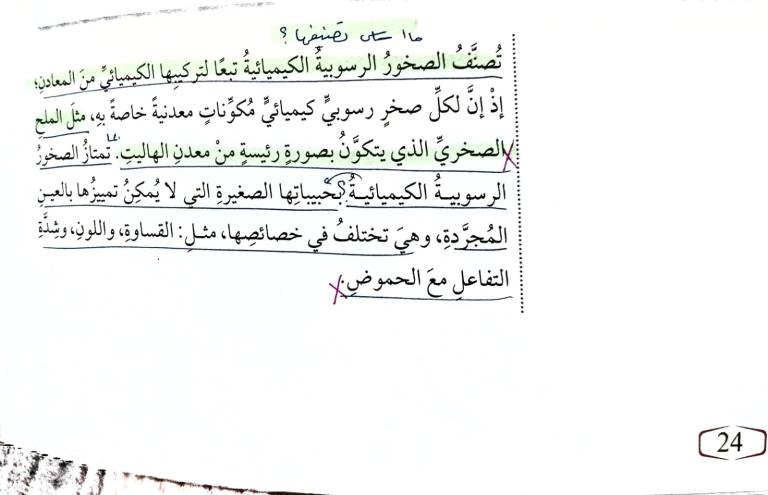 ما اساس تصنيفها ؟
تُصنَّفُ الصخورُ الرسوبيةُ الكيميائيةُ تبعًا لتركيبِها الكيميائيِّ منَ المعادنِ؛
إذْ إنَّ لكلِّ صخرٍ رسوبيٍّ كيميائيٍّ مُكوِّناتٍ معدنيةً خاصةً بهِ، مثلَ الملحِ
الصخريِّ الذي يتكوَّنُ بصورةٍ رئيسةٍ منْ معدنِ الهاليتِ. تمتازُ الصخورُ
الرسوبيةُ الكيميائيةُ بحُبيباتِها الصغيرةِ التي لا يُمكِنُ تمييزُها بالعينِ
المُجرَّدةِ، وهيَ تختلفُ في خصائصِها، مثلِ: القساوةِ، واللونِ، وشِدَّةِ
التفاعلِ معَ الحموضِ.
24